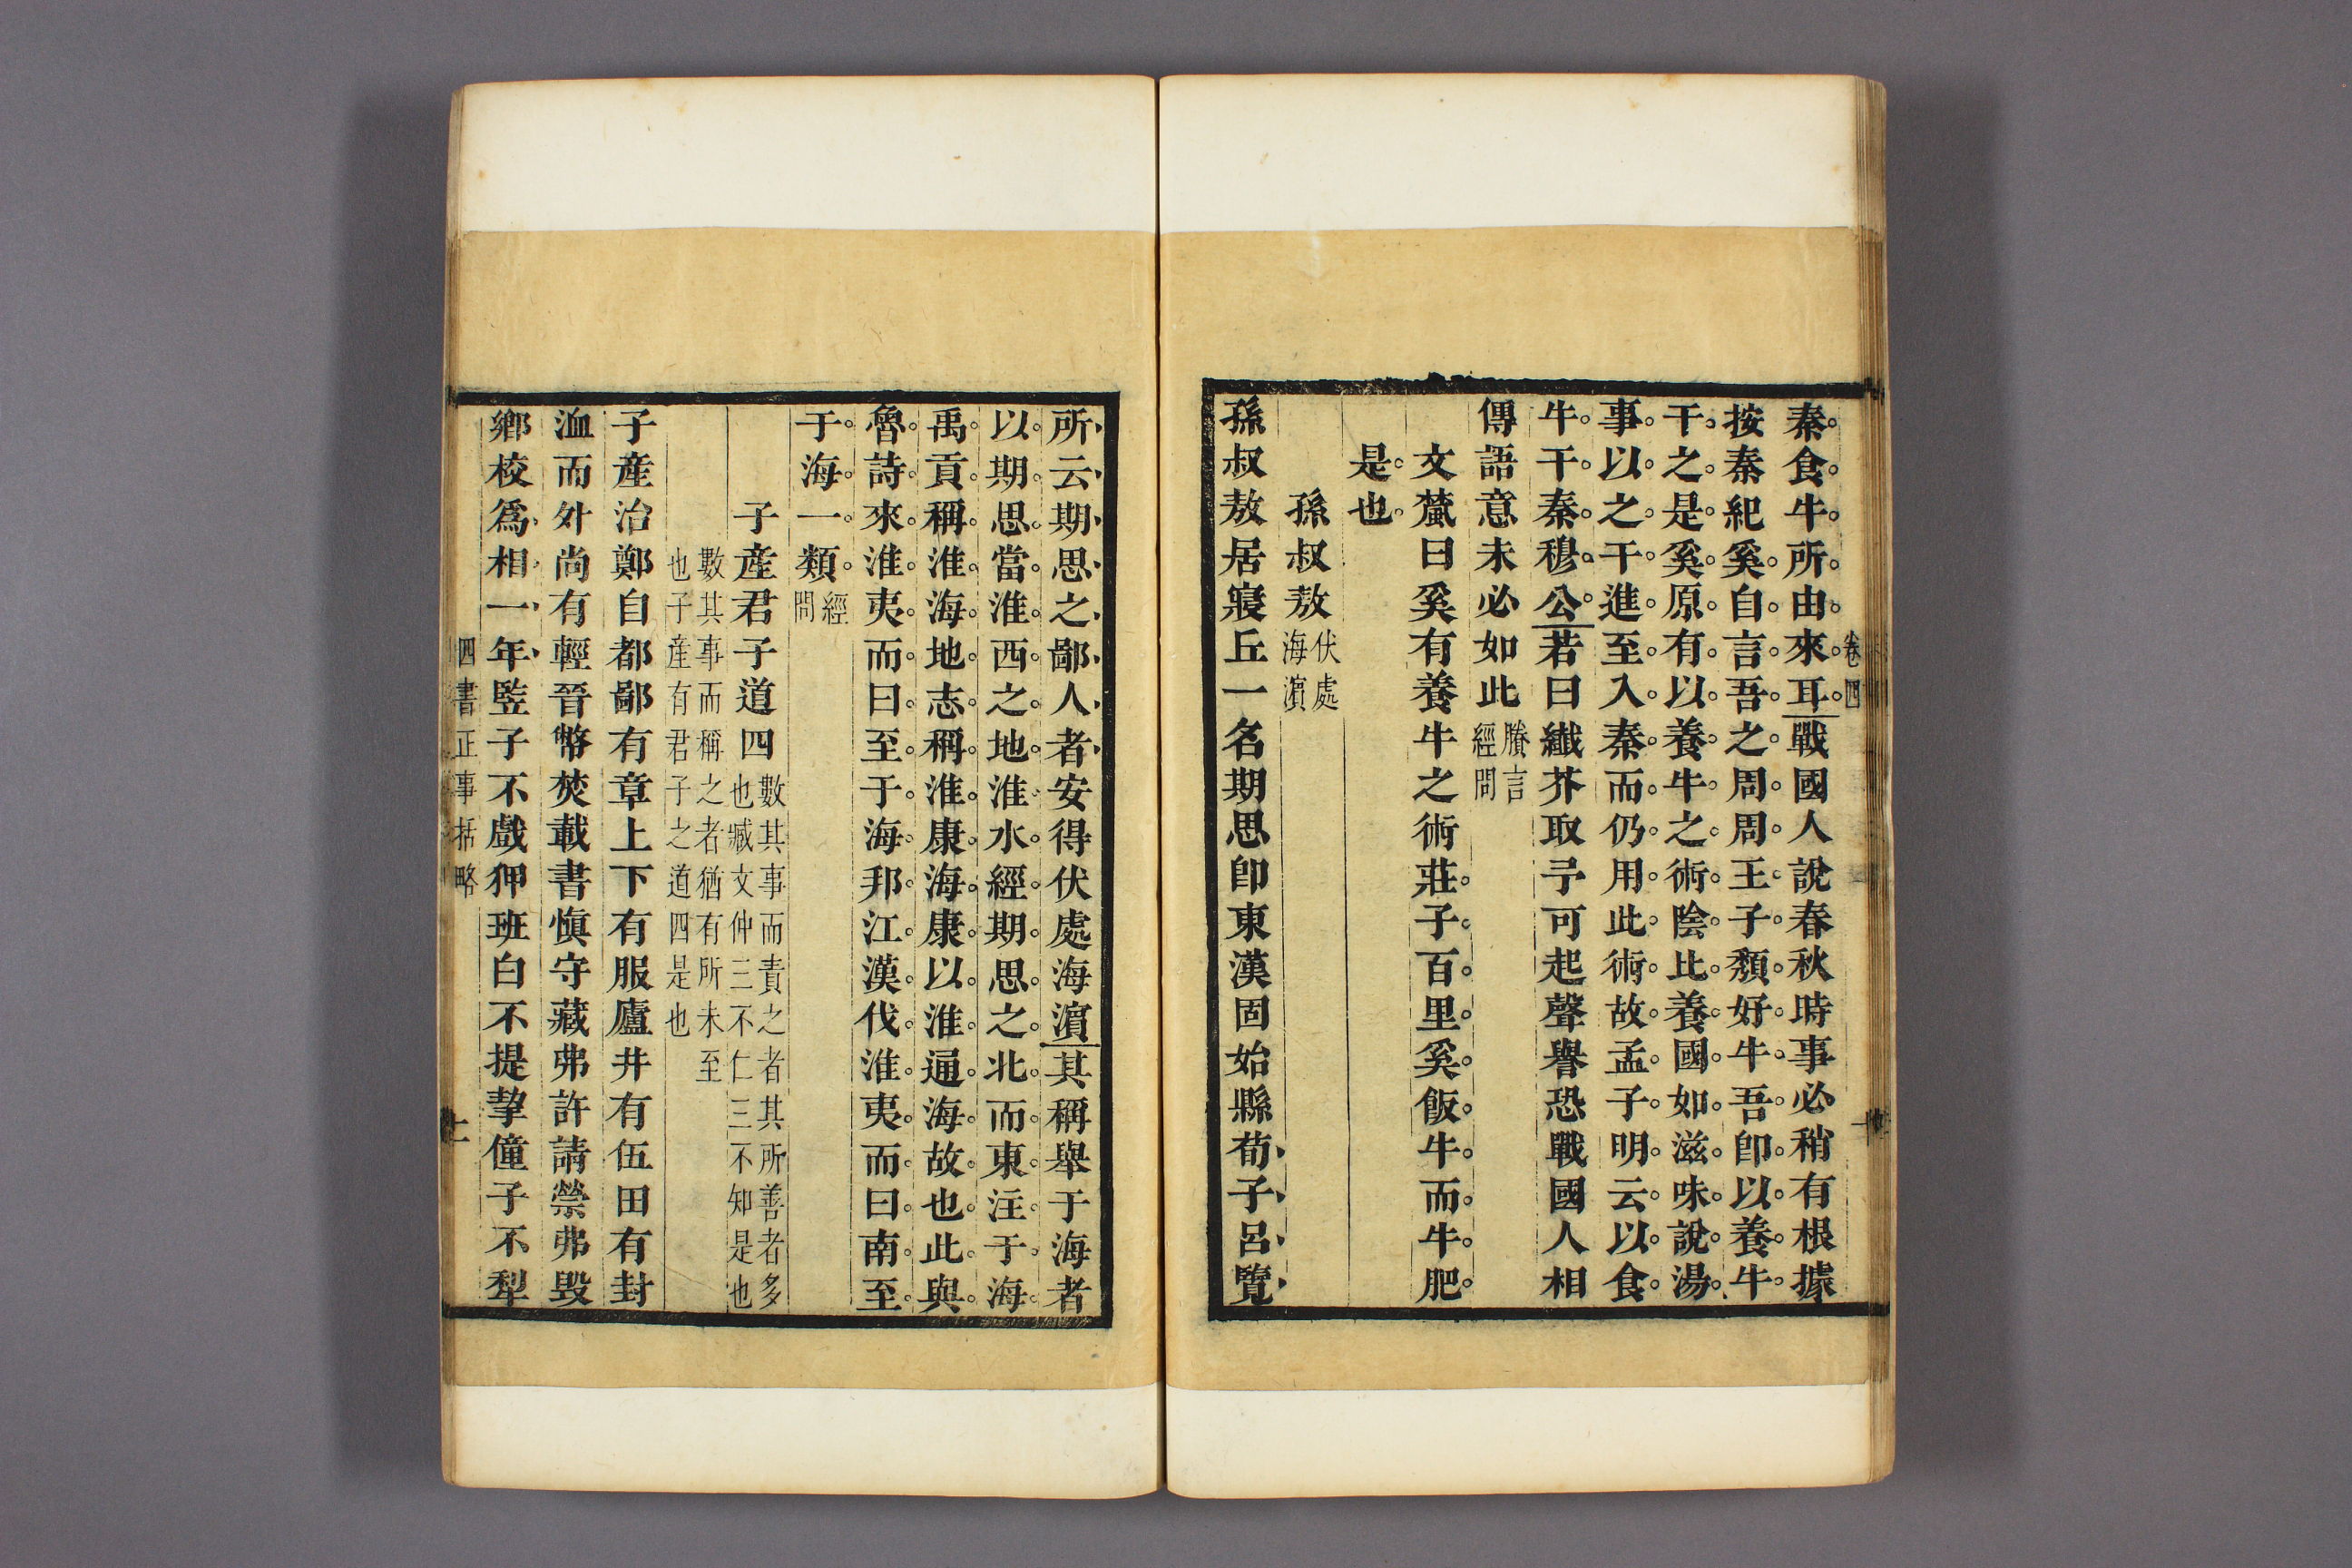 卷四
秦食牛所由來耳戰國人說春秋時事必稍有根據
按秦紀奚自言吾之周周王子頹好牛吾卽以養牛
干之是奚原有以養牛之術陰比養國如滋味說湯
事以之干進至入秦而仍用此術故孟子明云以食
牛干秦穆公若曰纖芥取予可起聲譽恐戰國人相
傳語意未必如此賸言經問
文虨曰奚有養牛之術莊子百里奚飯牛而牛肥
是也
孫叔敖伏處海濵
孫叔敖居寢丘一名期思卽東漢固始縣荀子呂覽
所云期思之鄙人者安得伏處海濵其稱舉于海者
以期思當淮西之地淮水經期思之北而東注于海
禹貢稱淮海地志稱淮康海康以淮通海故也此與
魯詩來淮夷而曰至于海邦江漢伐淮夷而曰南至
于海一類經問
子產君子道四數其事而責之者其所善者多也臧文仲三不仁三不知是也
數其事而稱之者猶有所未至也子產有君子之道四是也
子產治鄭自都鄙有章上下有服廬井有伍田有封
洫而外尚有輕晉幣焚載書愼守藏弗許請禜弗毁
鄉校爲相一年豎子不戲狎班白不提挈僮子不犁
四書正事括略